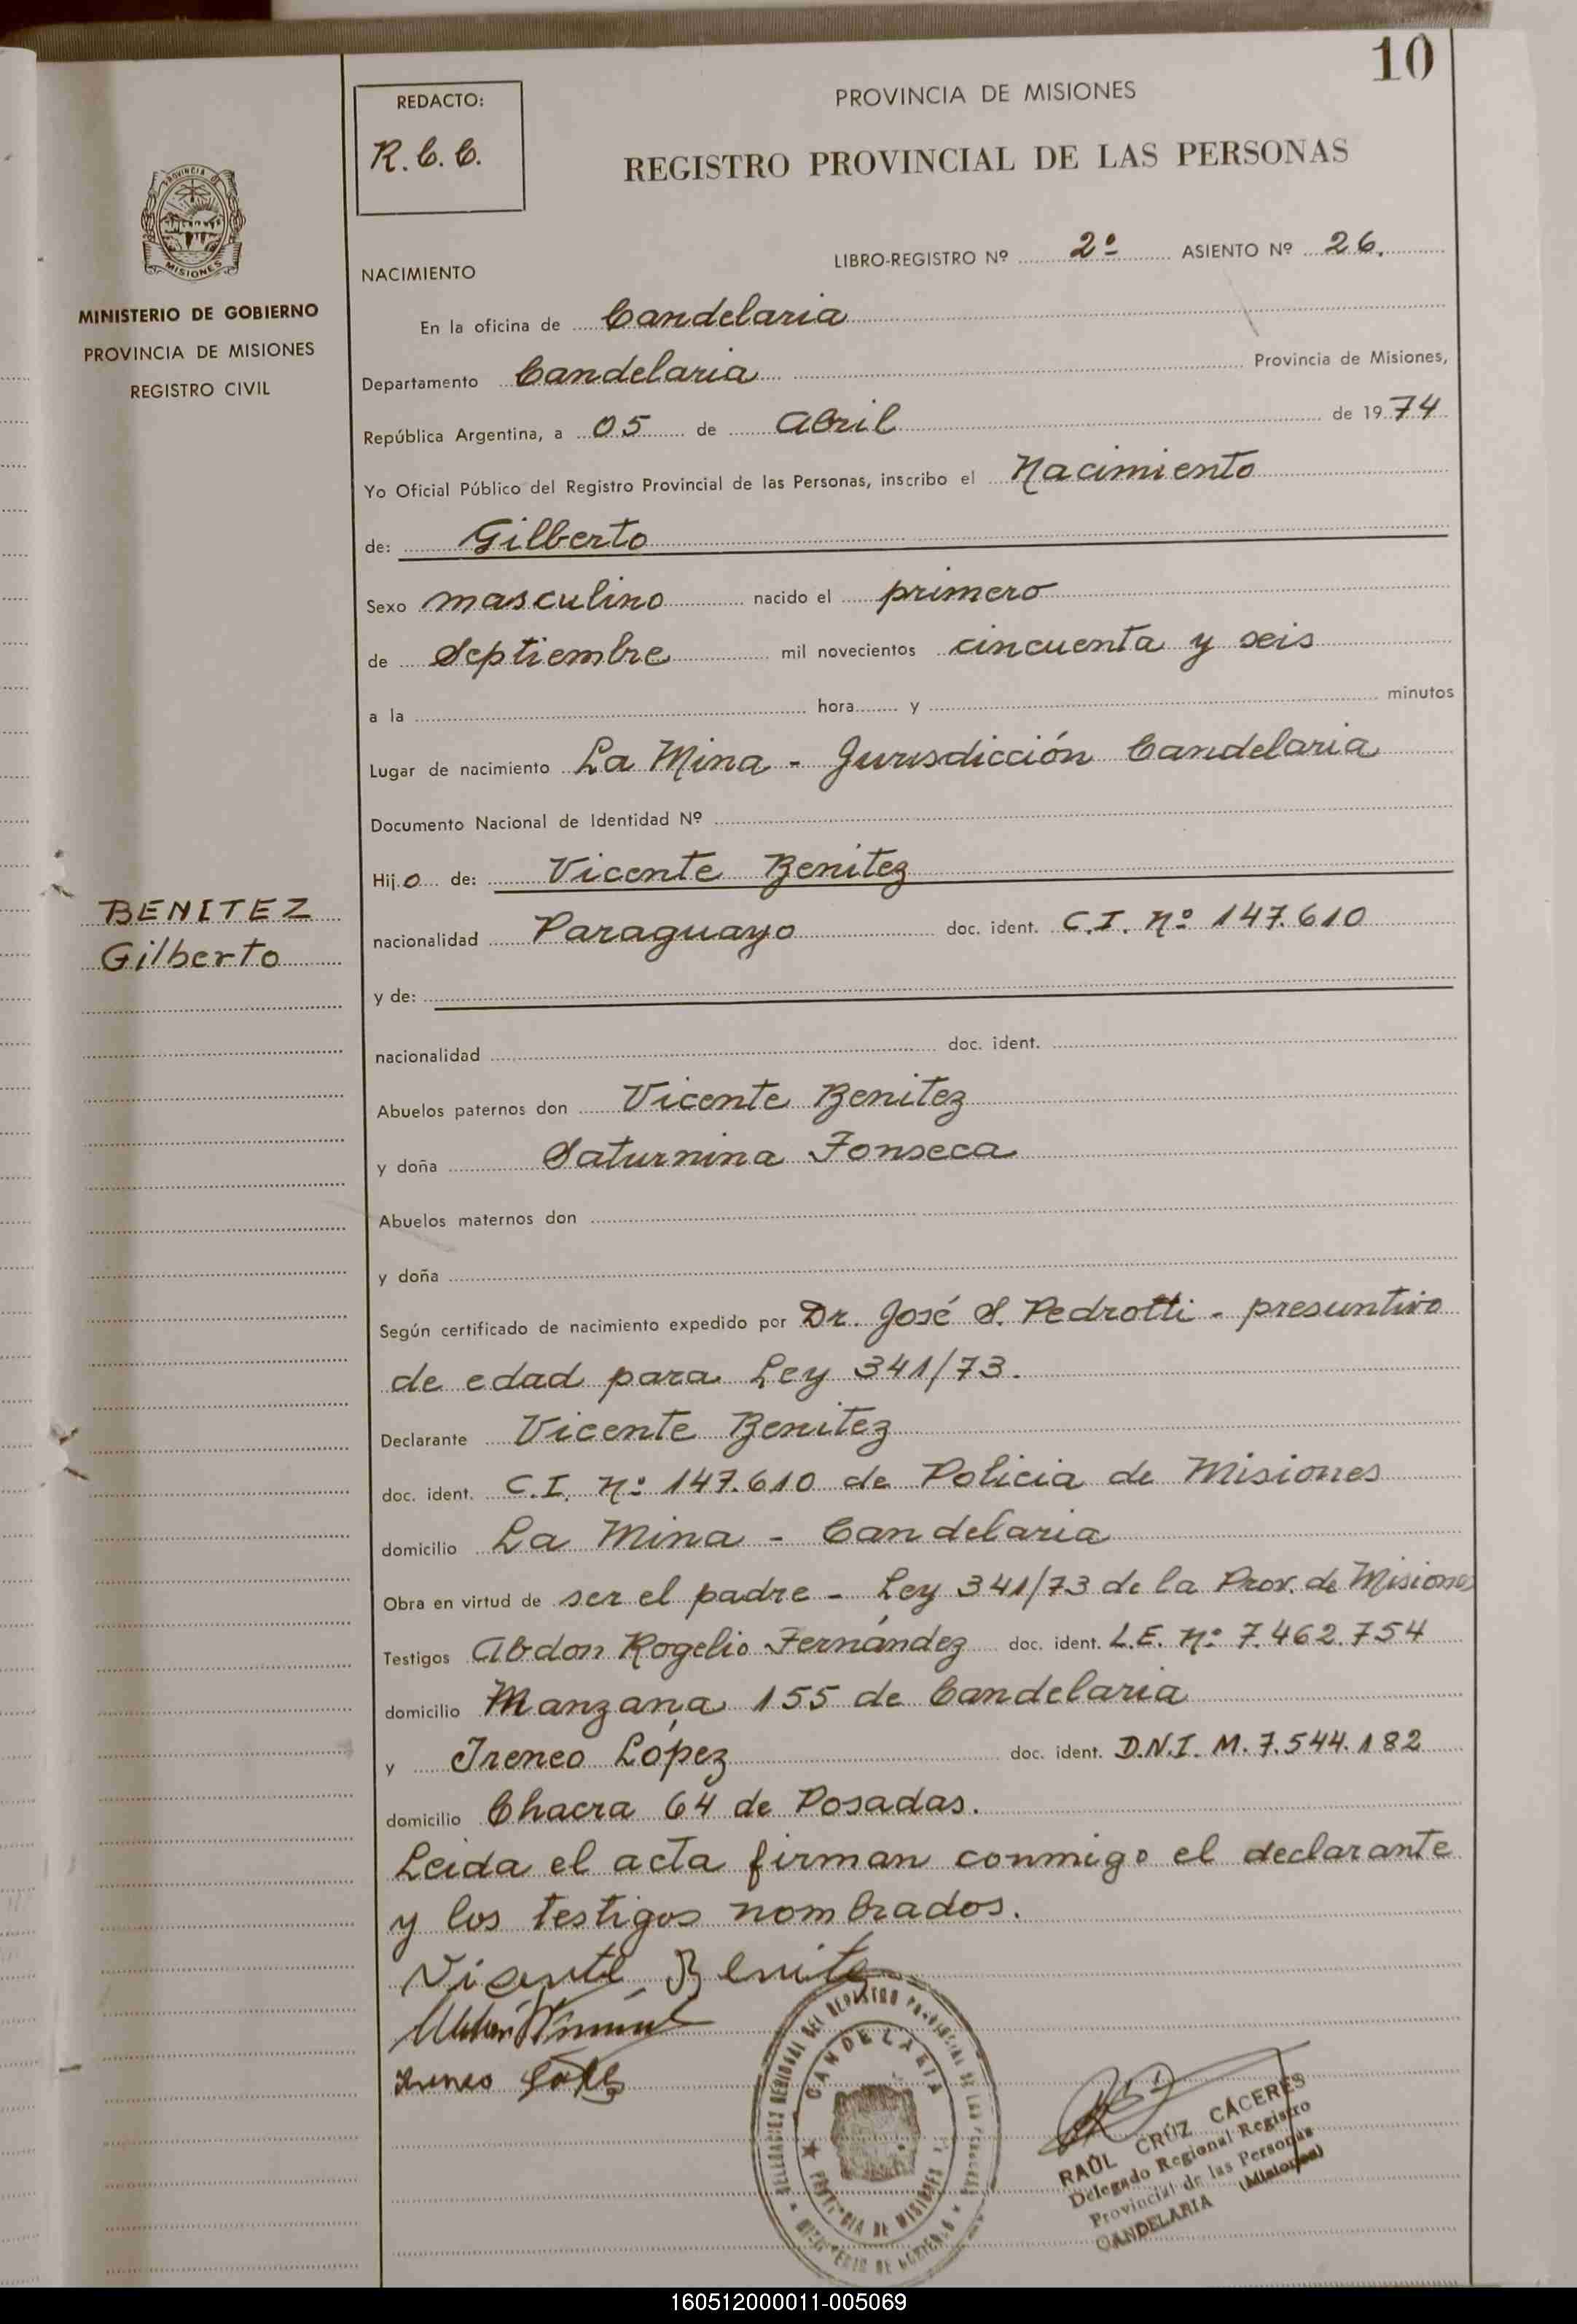 10
REDACTO:
R.C.C.
PROVINCIA DE MISIONES
REGISTRO PROVINCIAL DE LAS PERSONAS
PROVINCIA DE
MISIONES
MINISTERIO DE GOBIERNO
PROVINCIA DE MISIONES
REGISTRO CIVIL
NACIMIENTO
LIBRO-REGISTRO Nº 2º ASIENTO Nº 26.
En la oficina de Candelaria
Departamento Candelaria Provincia de Misiones,
República Argentina, a 05 de Abril de 1974
Yo Oficial Público del Registro Provincial de las Personas, inscribo el Nacimiento
de: Gilberto
Sexo masculino nacido el primero
de Septiembre mil novecientos cincuenta y seis
a la hora y minutos
Lugar de nacimiento La Mina - Jurisdicción Candelaria
Documento Nacional de Identidad Nº
Hijo de: Vicente Benitez
BENITEZ
Gilberto
nacionalidad Paraguayo doc. ident. C.I. Nº 147.610
y de:
nacionalidad doc. ident.
Abuelos paternos don Vicente Benitez
y doña Saturnina Fonseca
Abuelos maternos don
y doña
Según certificado de nacimiento expedido por Dr. José S. Pedrotti - presuntivo
de edad para Ley 341/73.
Declarante Vicente Benitez
doc. ident. C.I. Nº 147.610 de Policia de Misiones
domicilio La Mina - Candelaria
Obra en virtud de ser el padre - Ley 341/73 de la Prov. de Misiones
Testigos Abdon Rogelio Fernández doc. ident. L.E. Nº 7.462.754
domicilio Manzana 155 de Candelaria
y Ireneo López doc. ident. D.N.I. M. 7.544.182
domicilio Chacra 64 de Posadas.
Leida el acta firman conmigo el declarante
y los testigos nombrados.
Vicente Benitez
Ireneo López
DELEGACION REGIONAL DEL REGISTRO PROVINCIAL DE LAS PERSONAS
CANDELARIA
PROVINCIA DE MISIONES
MINISTERIO DE GOBIERNO
RAÚL CRÚZ CÁCERES
Delegado Regional Registro
Provincial de las Personas
CANDELARIA (Misiones)
160512000011-005069